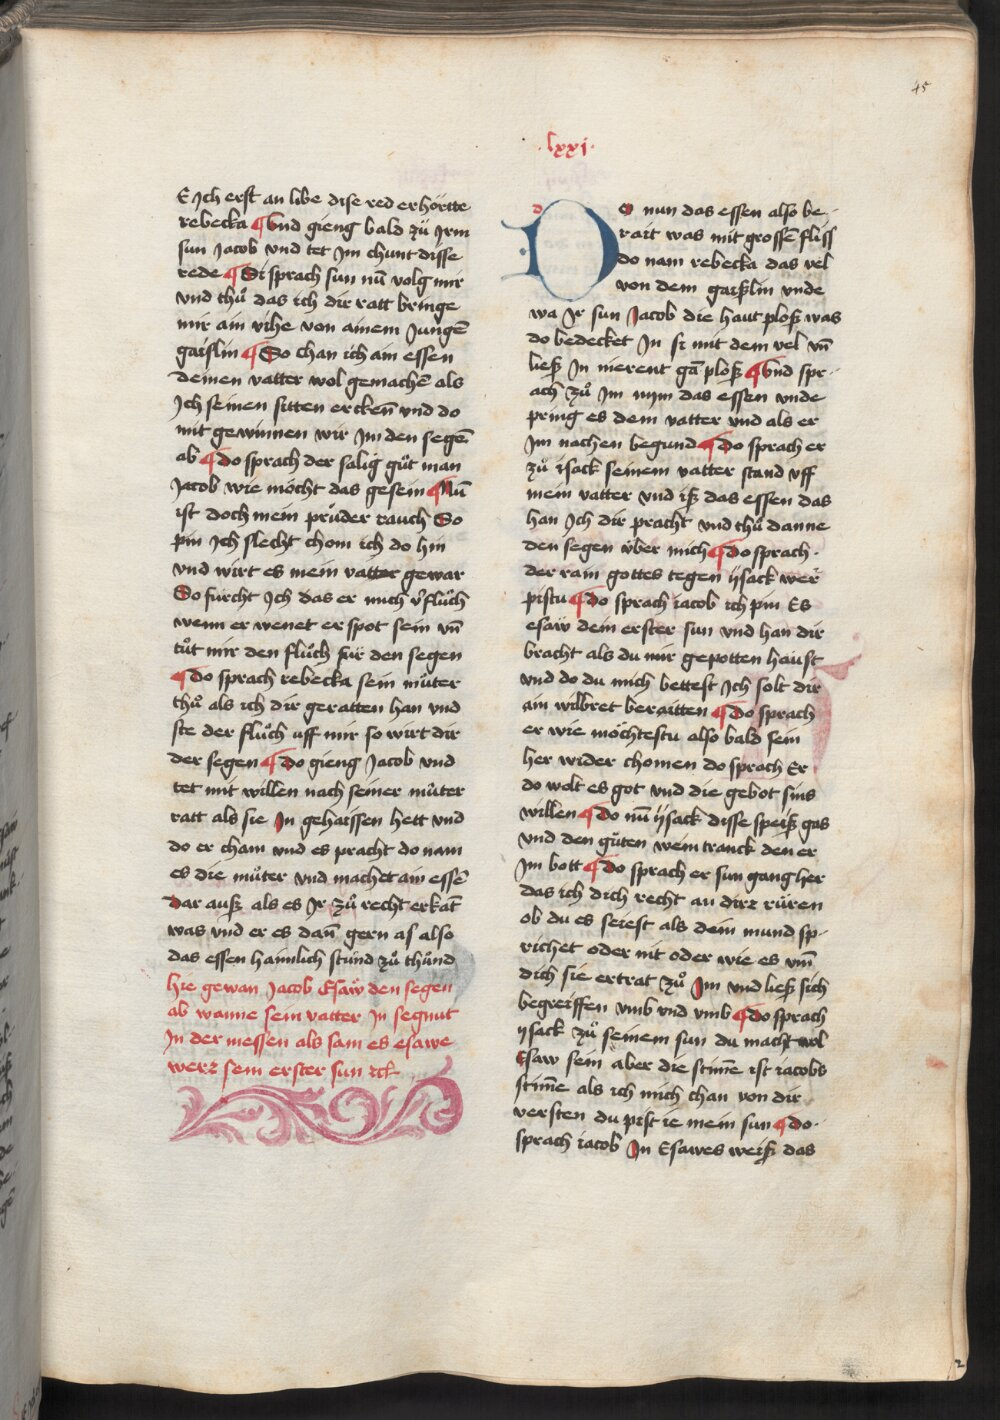 45
·lxxi·
E Jch erst an libe dise red erhörtte
rebecka ¶ Vnd gieng bald zů Jrm
sun Jacob vnd tet Jm chunt disse
rede ¶ Si sprach sun nu̅ volg mir
vnd thů das ich dir ratt bringe
mir ain vihe von ainem Junge̅
gaislin ¶ So chan ich ain essen
deinen vatter wol gemache̅ als
Jch seinen sitten ercken̅ vnd do
mit gewinnen wir Jm den sege̅
ab ¶ do sprach der sälig gůt man
Jacob wie möcht das gesein ¶ Nu̅
ist doch mein průder rauch So
pin Jch slecht chom ich do hin
vnd wirt es mein vatter gewar
So fürcht Jch das er mich v̾flůch
wenn er wenet er spot sein vn̅
tůt mir den flůch für den segen
¶ do sprach rebecka sein můter
thů als ich dir geratten han vnd
ste der flůch uff mir so wirt dir
der segen ¶ do gieng Jacob vnd
tet mit willen nach seiner můter
ratt als sie Jn gehaissen hett vnd
do er cham vnd es pracht do nam
es die můter vnd machet aīn esse̅
dar auß als es Jr zů recht erkat̅
was vnd er es dan̅ gern as also
das essen haimlich stůnd zů thůnd
hie gewan Jacob Esaẅ den segen
ab wanne sein vatter Jn segnut
Jn der messen als sam es esawe
werz sein erster sun rc̅
d
Do nun das essen also be-
rait was mit grosse̅ fliss
do nam rebecka das vel
von dem gaißlin vnde
wa Jr sun Jacob die haut ploß was
do bedecket Jn si mit dem vel vn̅
ließ Jn nierent ga̅ ploß ¶ Vnd spr-
ach zů Jm nym das essen vnde
pring es dem vatter vnd als er
Jm nachen begund ¶ do sprach er
zů isack seinem vatter stand vff
mein vatter vnd iß das essen das
han Jch dir pracht vnd thů danne
den segen über mich ¶ do sprach·
der rain gottes tegen ÿsack wer
pistu ¶ do sprach iacob ich pin Es
esaẅ dein erster sun vnd han dir
bracht als du mir gepotten haust
vnd do du mich bettest Jch solt dir
ain wilbret beraitten ¶ do sprach
er wie möchtestu also bald sein
her wider chomen do sprach Er
do wolt es got vnd die gebot sins
willen ¶ do nu̅ ÿsack disse speiß gas
vnd den gůten wein tranck den er
Jm bott ¶ do sprach er sun gang her
das ich dich recht an dirz rüren
ob du es seiest als dein mund sp-
richet oder nit oder wie es vm̅
dich sie ertrat zů Jm vnd ließ sich
begreiffen vmb vnd vmb ¶ do sprach
ysack zů seinem sun du macht wol
Esaw sein aber die stim̅e ist iacobs
stim̅e als ich mich chan von dir
versten du pist ie mein sun ¶ do·
sprach iacob Jn Esawes weiß das